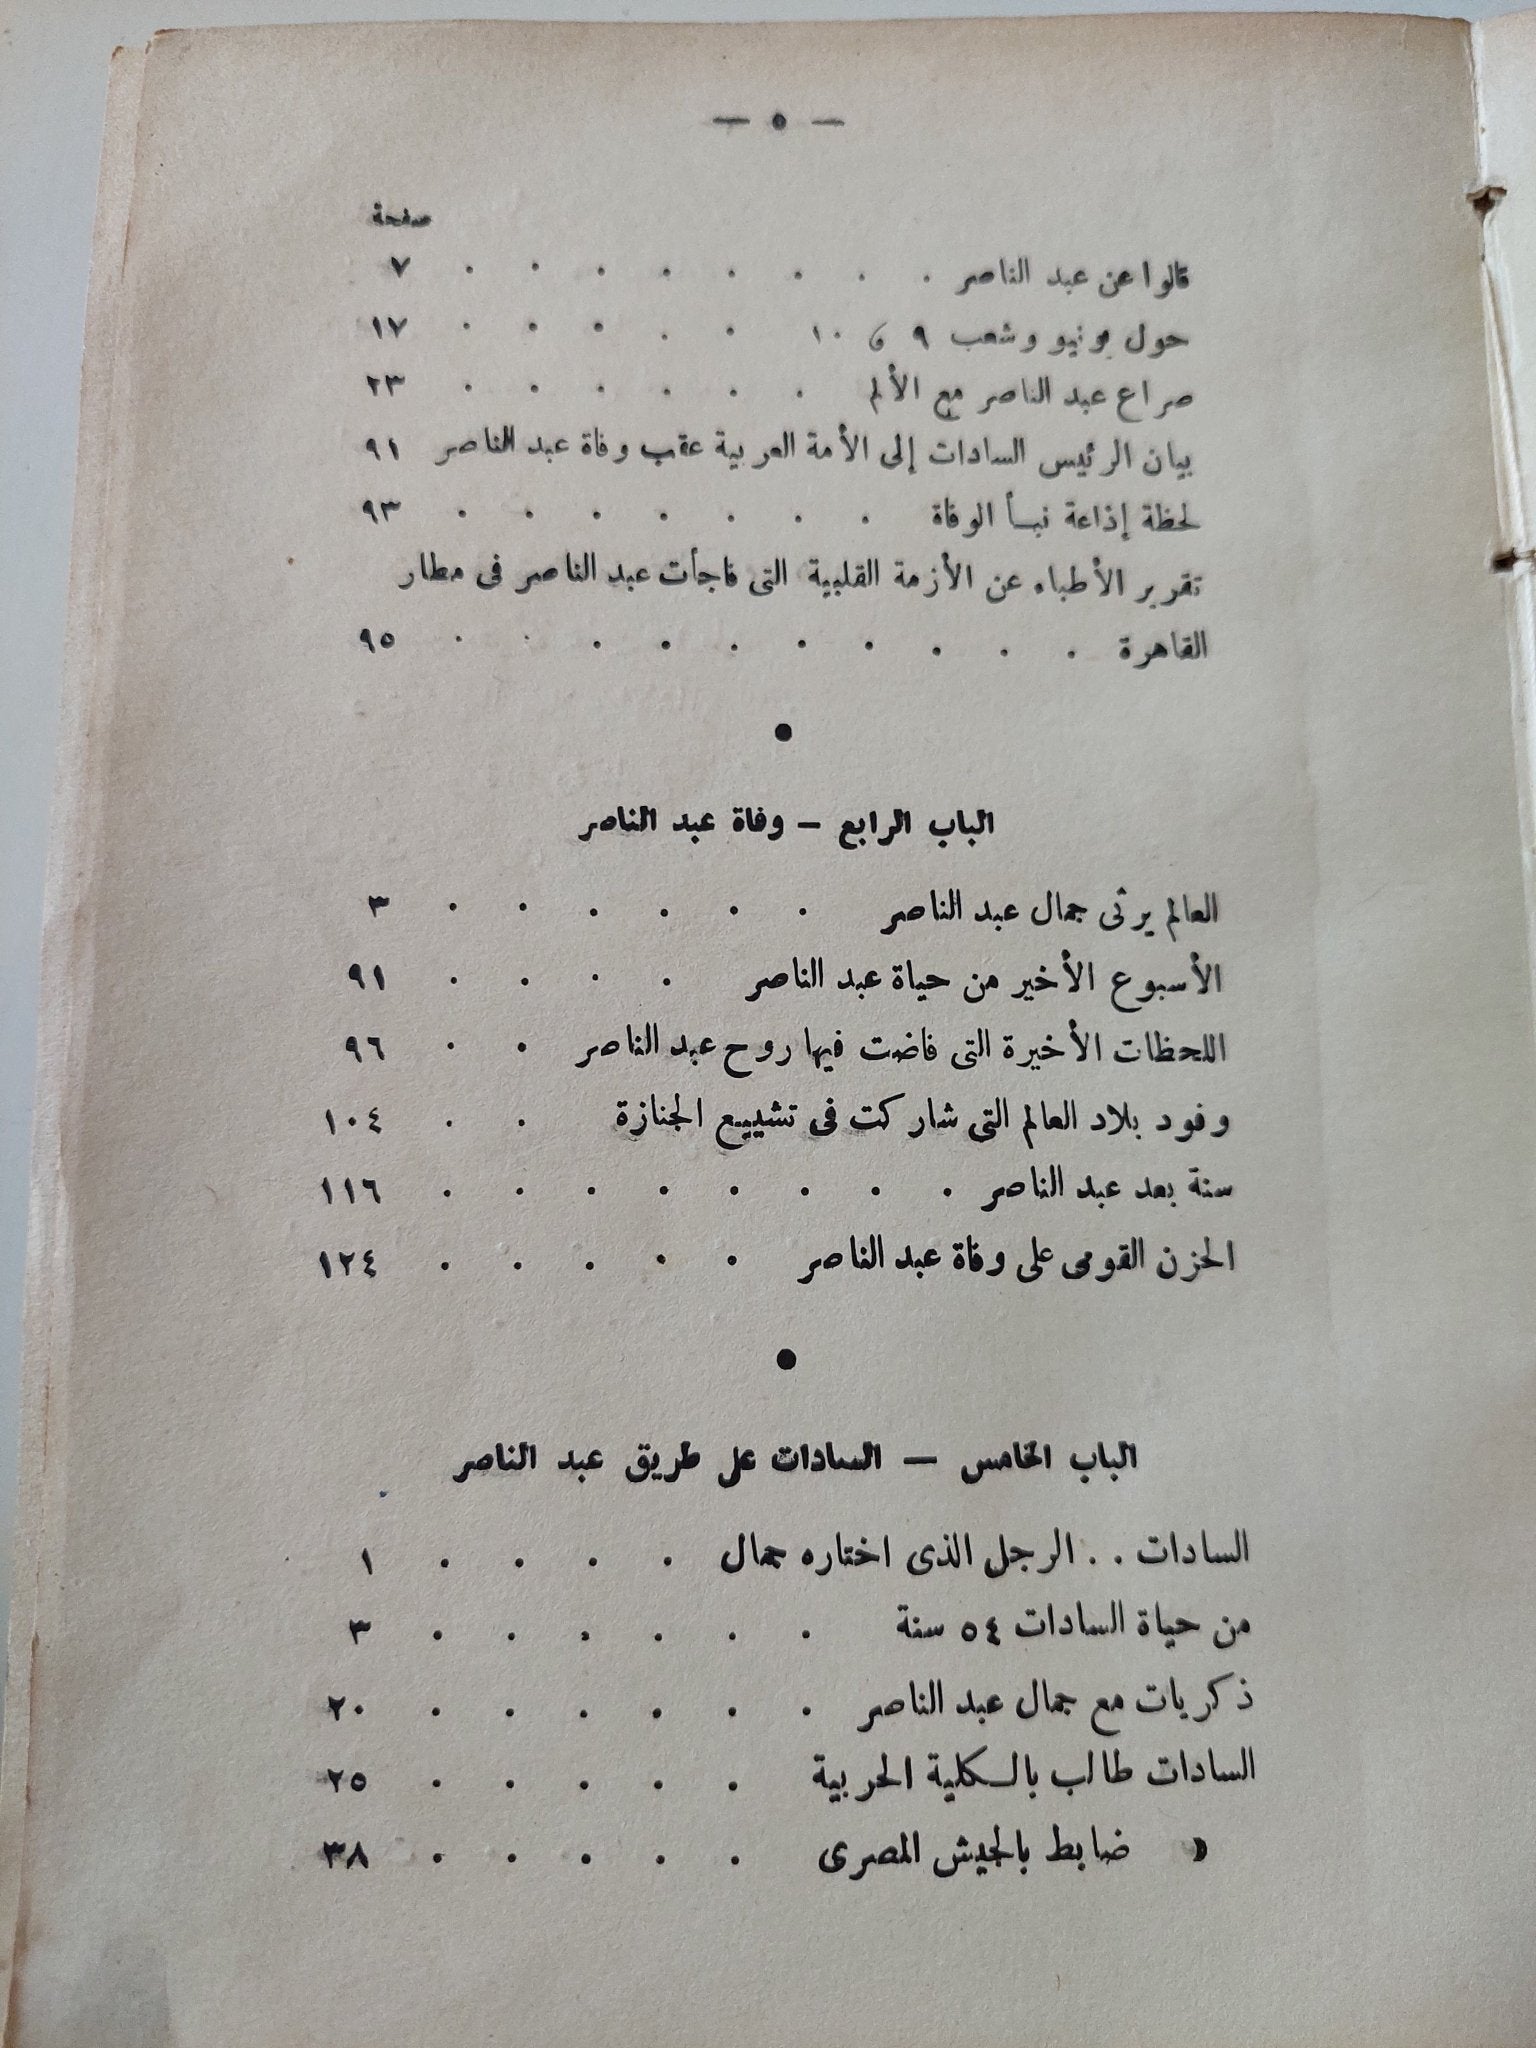 — ٥ —
صفحة
قالوا عن عبد الناصر . . . . . . . . ٧
حول يونيو وشعب ٩ و ١٠ . . . . . ١٧
صراع عبد الناصر مع الألم . . . . . . ٢٣
بيان الرئيس السادات إلى الأمة العربية عقب وفاة عبد الناصر ٩١
لحظة إذاعة نبأ الوفاة . . . . . . . ٩٣
تقرير الأطباء عن الأزمة القلبية التى فاجأت عبد الناصر فى مطار
القاهرة . . . . . . . . . . ٩٥
●
الباب الرابع — وفاة عبد الناصر
العالم يرثى جمال عبد الناصر . . . . . . ٣
الأسبوع الأخير من حياة عبد الناصر . . . . ٩١
اللحظات الأخيرة التى فاضت فيها روح عبد الناصر . . ٩٦
وفود بلاد العالم التى شاركت فى تشييع الجنازة . . ١٠٤
سنة بعد عبد الناصر . . . . . . . . ١١٦
الحزن القومى على وفاة عبد الناصر . . . . . ١٢٤
●
الباب الخامس — السادات على طريق عبد الناصر
السادات . . الرجل الذى اختاره جمال . . . . ١
من حياة السادات ٥٤ سنة . . . . . . ٣
ذكريات مع جمال عبد الناصر . . . . . . ٢٠
السادات طالب بالكلية الحربية . . . . . ٢٥
« ضابط بالجيش المصرى . . . . . ٣٨